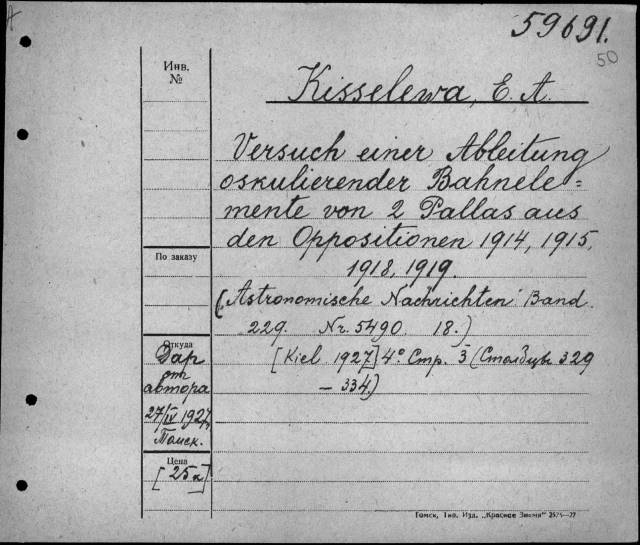 59691.
50
Инв.
№
Kisselewa, E. A.
Versuch einer Ableitung
oskulierender Bahnele=
mente von 2 Pallas aus
den Oppositionen 1914, 1915,
1918, 1919.
По заказу
(Astronomische Nachrichten Band
229. Nr. 5490. 18.)
[Kiel 1927] 4° Стр. 3 (Столбцы 329
– 334)
Откуда
Дар
от
автора
27/IV 1927.
Томск.
Цена
[25к]
Томск, Тип. Изд. „Красное Знамя“ 2575—27